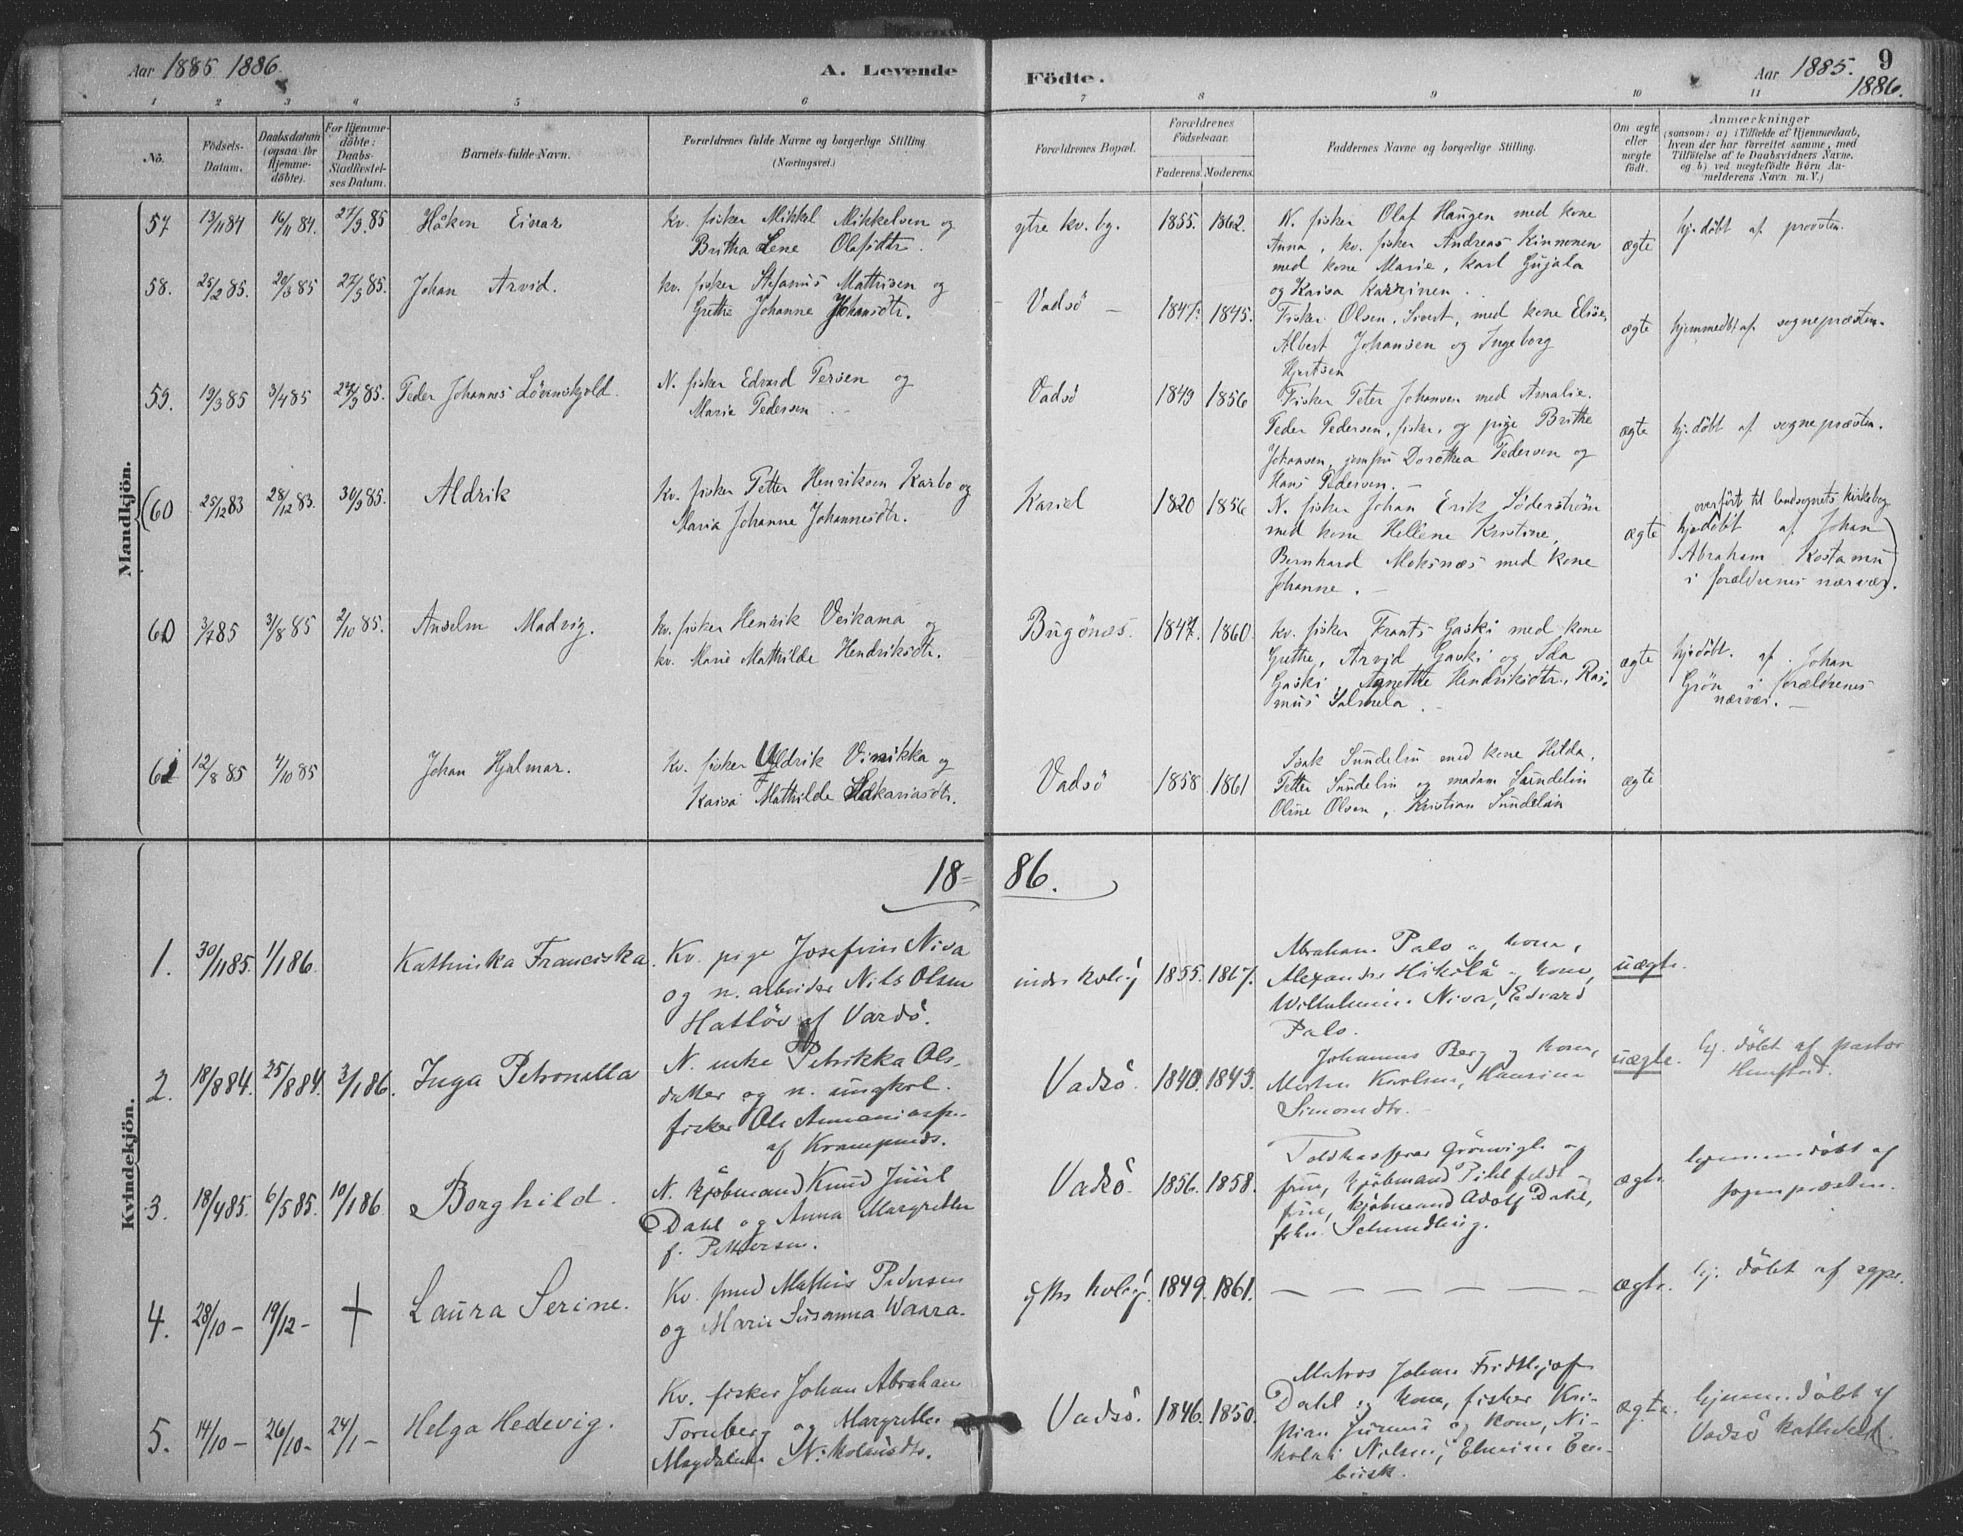 Aar 1885 1886. A. Levende Födte. Aar 1885. 1886. 9
1 2 3 4 5 6 7 8 9 10 11
No.
Födsels-Datum.
Daabsdatum (ogsaa for Hjemme-döbte).
For Hjemme-döbte: Daabs-Stadfæstel-ses Datum.
Barnets fulde Navn.
Forældrenes fulde Navne og borgerlige Stilling
(Næringsvei.)
Forældrenes Bopæl.
Forældrenes Födselsaar.
Faderens. Moderens.
Faddernes Navne og borgerlige Stilling.
Om ægte eller uægte födt.
Anmærkninger
(saasom: a) i Tilfælde af Hjemmedaab, hvem der har forrettet samme, med Tilföielse af to Daabsvidners Navne, og b) ved uægtefödte Börn An-melderens Navn m. V.)
Mandkjön.
57 13/11 84 16/11 84. 27/3.85 Håkon Einar
Kv. fisker Mikkel Mikkelsen og
Britha Lene Olafsdtr.
ytre kv. by. 1855. 1862.
N. fisker Olaf Haugen med kone
Anna, kv. fisker Andreas Kinnonen
med kone Marie, Karl Gujala
og Kaisa Karrinen.
ægte hj.döbt af provsten.
58. 25/2 85. 20/3 85 27/3 85. Johan Arvid.
kv. fisker Stefanus Mathisen og
Grethe Johanne Johansdtr.
Vadsö 1847. 1845.
Fisker Olsen, Sivert, med kone Elise,
Albert Johansen og Ingeborg
Hjertsen
ægte hjemmedbt af sognepræsten.
59. 19/3 85 3/4 85 27/3 85. Peder Johannes Lövenskjold.
N. fisker Edvard Persen og
Marie Pedersen.
Vadsö 1849 1856
Fisker Peter Johansen med Amalie.
Peder Pedersen, fisker, og pige Brithe
Johansen, jomfru Dorothea Pedersen og
Hans Pedersen.
ægte hj.döbt af sognepræsten.
(60 25/12 83 28/12 83. 30/3 85. Aldrik
Kv. fisker Petter Henriksen Karbo og
Maria Johanne Johannesdtr.
Kariel 1820 1856
N. fisker Johan Erik Söderström
med kone Hellene Kristine,
Bernhard Moksnæs med kone
Johanne.
ægte overfört til landsognets kirkebog
hjedöbt af Johan
Abraham Kostamu
i forældrenes nærvær.)
60 3/7 85 3/8 85 2/10 85. Anselm Madvig.
Kv. fisker Henrik Veikama og
kv. Marie Mathilde Hendriksdtr.
Bugönes. 1847. 1860.
kv. fisker Frants Gaski med kone
Grethe, Arvid Gaski og Ida
Gaski, Agnethe Hendriksdtr, Ras-
mus Salmela.
ægte hjedöbt. af Johan
Grön i forældrenes
nærvær.
61 12/8 85 4/10 85 Johan Hjalmar.
Kv. fisker Uldrik Vinikka og
Kaisa Mathilde Sakariasdtr.
Vadsö 1858 1861
Isak Sundelin med kone Hilda,
Petter Sundelin og madam Sundelin
Oline Olsen, Kristian Sundelin
ægte
18= 86.
Kvindekjön.
1. 30/11 85. 1/1 86. Kathinka Franciska.
Kv. pige Josefine Niva
og n. arbeider Nils Olsen
Hatlöv af Vardö.
indre kvby 1855. 1867.
Abraham Palo og kone,
Alexander Hikilä og kone,
Wilhelmine Niva, Edvard
Palo.
uægte.
2. 18/8 84. 25/8 84. 3/1 86. Inga Petronella
N. enke Petrikka Ols-
datter og n. ungkarl.
fisker Ole Ananiasen
af Krampenes.
Vadsö. 1840. 1843.
Johannes Berg og kone,
Morten Karlsen, Hansine
Simonsdtr.
uægte. hj. döbt af pastor
3. 18/4 85. 6/5 85. 10/1 86 Borghild.
N. kjöbmand Knud Juul
Dahl og Anna Margrethe
f. Pettersen.
Vadsö. 1856. 1858.
Toldkasserer Grönvigh og
frue, kjöbmand Pihlfeldt og
frue, kjöbmand Adolf Dahl,
frkn. Schmidling.
ægte. hjemmedöbt af
sognepræsten.
4. 28/10 – 19/12 – † Laura Serine.
Kv. Mathis Pedersen
og Marie Susanna Waara.
ytre kvby 1849. 1861. — — — — —
ægte. hj. döbt af sgpr.
5. 14/10 – 26/10 – 24/1 – Helga Hedevig.
Kv. fisker Johan Abraham
Tornberg og Margrethe
Magdalene Nikolaisdtr.
Vadsö. 1846. 1850.
Matros Johan Fridthjof
Dahl og kone, fisker Kri-
stian og kone, Ni-
kolai Nilsen,
ægte. hjemmedöbt af
Vadsö